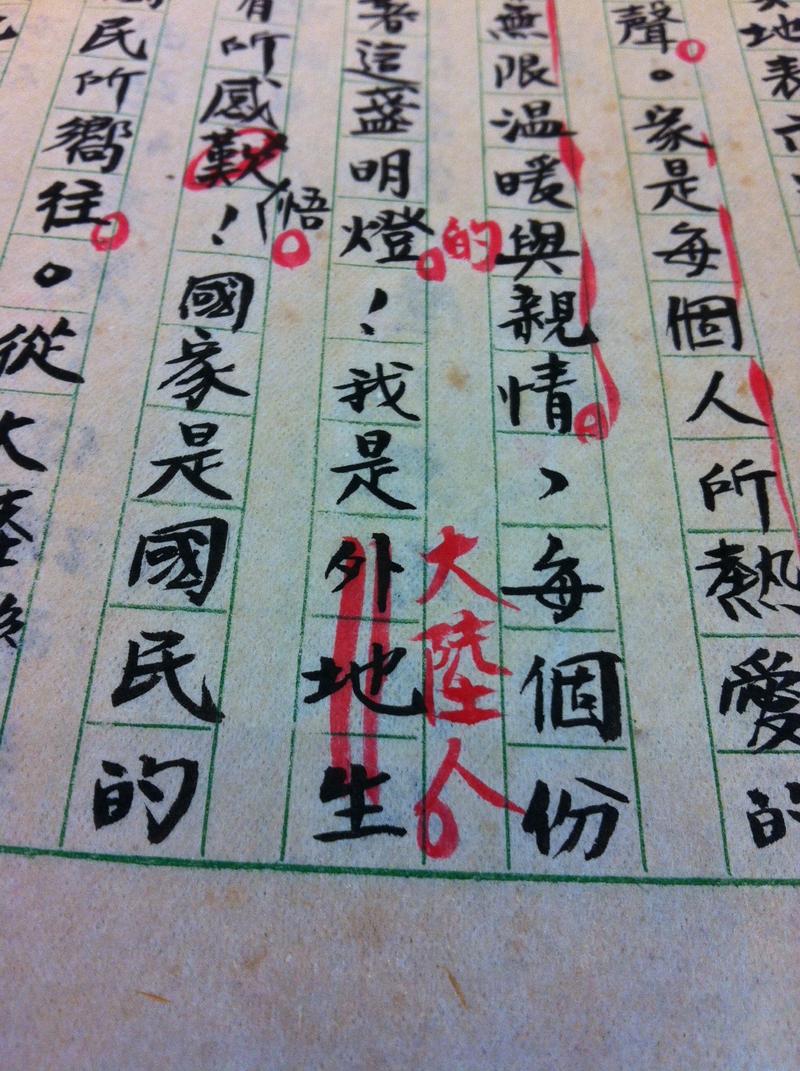 地表
聲。家是每個人所熱愛的
無限温暖與親情、每個份
的大陸人
著這盞明燈！我是外地生
悟
有所感歎！國家是國民的
民所嚮往。從大陸